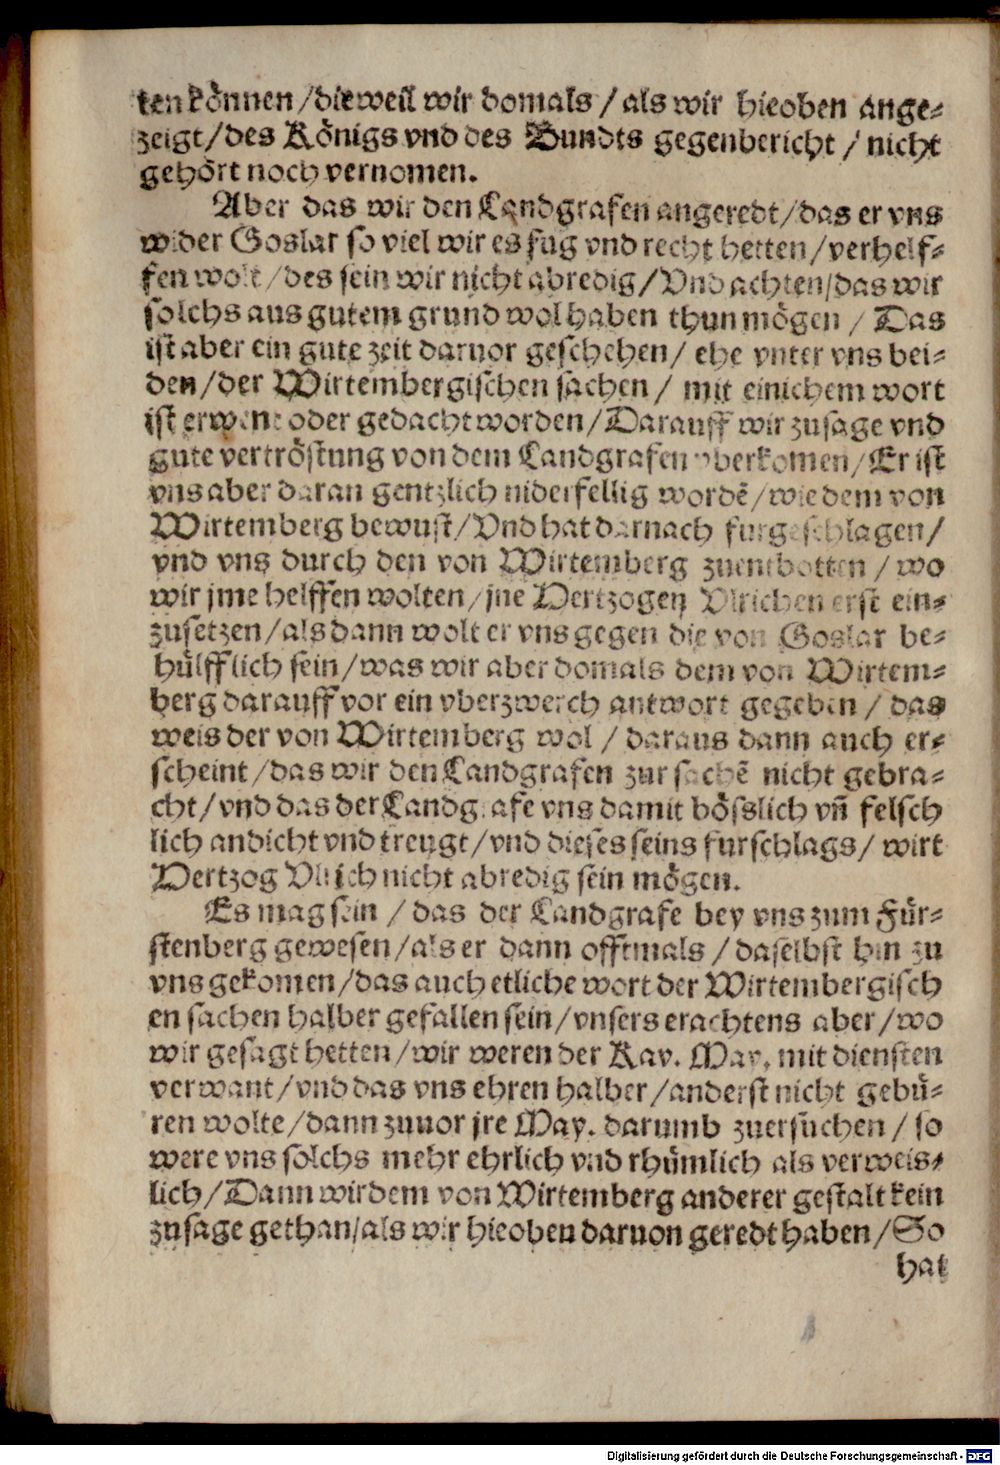 ten können/dieweil wir domals/als wir hieoben ange-
zeigt/des Königs vnd des Bundts gegenbericht/nicht
gehört noch vernomen.
Aber das wir den Landgrafen angeredt/das er vns
wider Goslar so viel wir es fug vnd recht hetten/verhelf-
fen wolt/des sein wir nicht abredig/Vnd achten/das wir
solchs aus gutem grund wol haben thun mögen/Das
ist aber ein gute zeit daruor geschehen/ehe vnter vns bei-
den/der Wirtembergischen sachen/mit einichem wort
ist erwent oder gedacht worden/Darauff wir zusage vnd
gute vertröstung von dem Landgrafen vberkomen/Er ist
vns aber daran gentzlich niderfellig wordē/wie dem von
Wirtemberg bewust/Vnd hat darnach furgeschlagen/
vnd vns durch den von Wirtemberg zuentbotten/wo
wir jme helffen wolten/jne Hertzogen Vlrichen erst ein-
zusetzen/als dann wolt er vns gegen die von Goslar be-
hülfflich sein/was wir aber domals dem von Wirtem-
berg darauff vor ein vberzwerch antwort gegeben/das
weis der von Wirtemberg wol/daraus dann auch er-
scheint/das wir den Landgrafen zur sachē nicht gebra-
cht/vnd das der Landgrafe vns damit bösslich vn̄ felsch
lich andicht vnd treugt/vnd dieses seins furschlags/wirt
Hertzog Vlrich nicht abredig sein mögen.
Es mag sein/das der Landgrafe bey vns zum Für-
stenberg gewesen/als er dann offtmals/daselbst hin zu
vns gekomen/das auch etliche wort der Wirtembergisch
en sachen halber gefallen sein/vnsers erachtens aber/wo
wir gesagt hetten/wir weren der Kay. May. mit diensten
verwant/vnd das vns ehren halber/anderst nicht gebü-
ren wolte/dann zuuor jre May. darumb zuersuchen/so
were vns solchs mehr ehrlich vnd rhümlich als verweis-
lich/Dann wir dem von Wirtemberg anderer gestalt kein
zusage gethan/als wir hieoben daruon geredt haben/So
hat
Digitalisierung gefördert durch die Deutsche Forschungsgemeinschaft - DFG